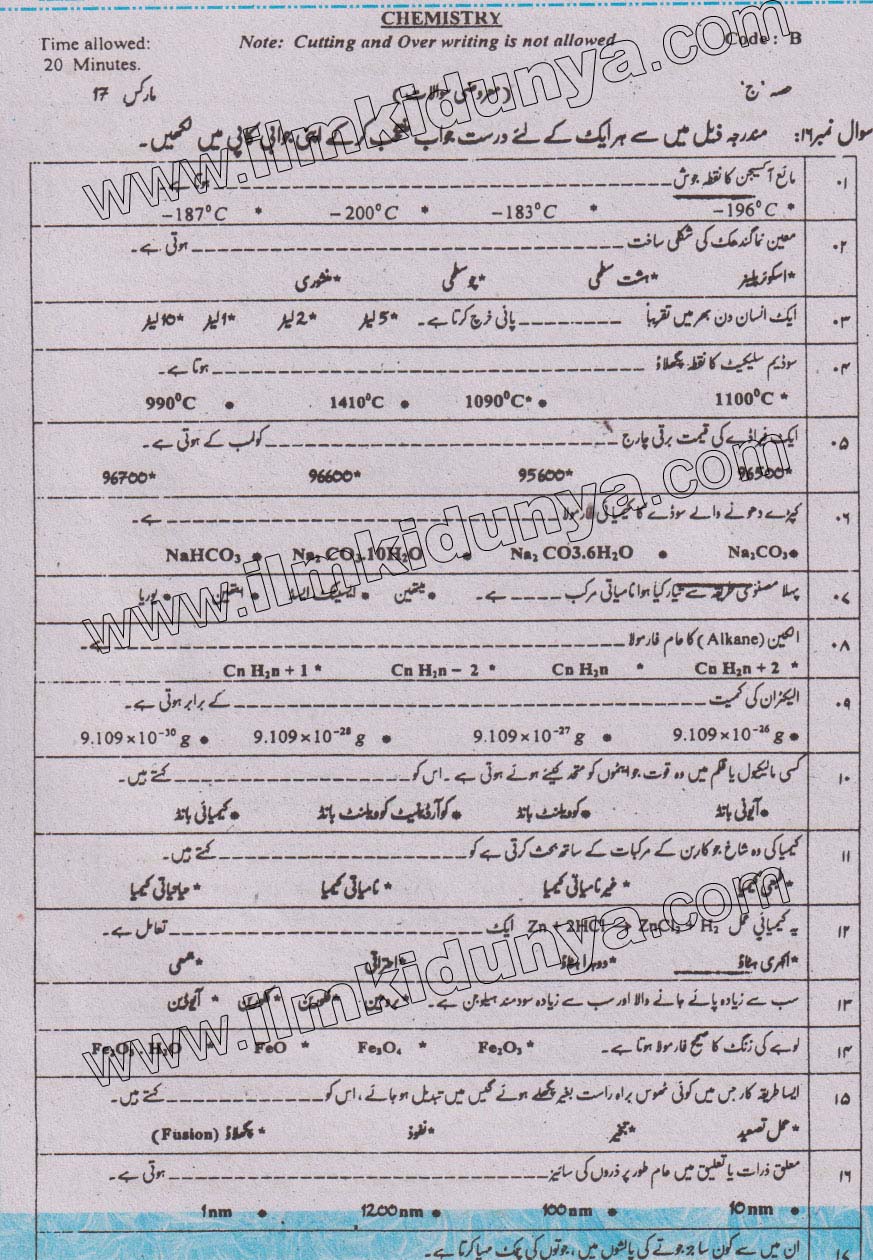 CHEMISTRY
Time allowed: Note: Cutting and Over writing is not allowed Code : B
20 Minutes.
حصہ "ج" (معروضی سوالات) مارکس 17
سوال نمبر ۱۶: مندرجہ ذیل میں سے ہر ایک کے لئے درست جواب منتخب کر کے اپنی جوابی کاپی میں لکھیں۔
۰۱ مائع آکسیجن کا نقطہ جوش ____________ ہوتا ہے۔
* −196⁰C * −183⁰C * −200⁰C * −187⁰C
۰۲ معین نما گندھک کی شکلی ساخت ____________ ہوتی ہے۔
*اسکوئر پلینر *ہشت سطحی *چو سطحی *منشوری
۰۳ ایک انسان دن بھر میں تقریباً ____________ پانی خرچ کرتا ہے۔ *5 لیٹر *2 لیٹر *1 لیٹر *10 لیٹر
۰۴ سوڈیم سلیکیٹ کا نقطہ پگھلاؤ ____________ ہوتا ہے۔
* 1100⁰C • *1090⁰C • 1410⁰C • 990⁰C
۰۵ ایک فیراڈے کی قیمت برقی چارج ____________ کولمب کے ہوتی ہے۔
*96500 *95600 *96600 *96700
۰۶ کپڑے دھونے والے سوڈے کا کیمیائی فارمولا ____________ ہے۔
•Na₂CO₃ • Na₂ CO3.6H₂O • Na₂ CO₃.10H₂O • NaHCO₃
۰۷ پہلا مصنوعی طریقہ سے تیار کیا ہوا نامیاتی مرکب _____ ہے۔ •میتھین • ایسیٹک ایسڈ • ایتھین • یوریا
۰۸ الکین (Alkane) کا عام فارمولا ____________ ہے۔
* Cn H₂n + 2 * Cn H₂n * Cn H₂n − 2 * Cn H₂n + 1
۰۹ الیکٹران کی کمیت ____________ کے برابر ہوتی ہے۔
• 9.109×10⁻²⁶ g • 9.109×10⁻²⁷ g • 9.109×10⁻²⁸ g • 9.109×10⁻³⁰ g
۱۰ کسی مالیکیول یا قلم میں وہ قوت جو ایٹموں کو متحد کیئے ہوئے ہوتی ہے۔ اس کو ____________ کہتے ہیں۔
•آیونی بانڈ •کوویلنٹ بانڈ •کوآرڈینیٹ کوویلنٹ بانڈ •کیمیائی بانڈ
۱۱ کیمیا کی وہ شاخ جو کاربن کے مرکبات کے ساتھ بحث کرتی ہے کو ____________ کہتے ہیں۔
*طبعی کیمیا * غیر نامیاتی کیمیا * نامیاتی کیمیا * حیاتیاتی کیمیا
۱۲ یہ کیمیائی عمل Zn + 2HCl → ZnCl₂ + H₂ ایک ____________ تعامل ہے۔
*اکہری ہٹاؤ *دوہرا ہٹاؤ *احتراقی *جمعی
۱۳ سب سے زیادہ پائے جانے والا اور سب سے زیادہ سودمند ہیلوجن ہے۔ * برومین * فلورین * کلورین * آیوڈین
۱۴ لوہے کی زنگ کا صحیح فارمولا ہوتا ہے۔ * Fe₂O₃ * Fe₃O₄ * FeO * Fe₂O₃ . H₂O
۱۵ ایسا طریقہ کار جس میں کوئی ٹھوس براہ راست بغیر پگھلے ہوئے گیس میں تبدیل ہو جائے، اس کو ____________ کہتے ہیں۔
* عمل تصعید * تبخیر * نفوذ * پگھلاؤ (Fusion)
۱۶ معلق ذرات یا تعلیق میں عام طور پر ذروں کی سائیز ____________ ہوتی ہے۔
• 10 nm • 100 nm • 1200 nm • 1 nm
۱۷ ان میں سے کون سا جز جوتے کی پالشوں میں، جوتوں کی چمک مہیا کرتا ہے۔
www.ilmkidunya.com
www.ilmkidunya.com
www.ilmkidunya.com